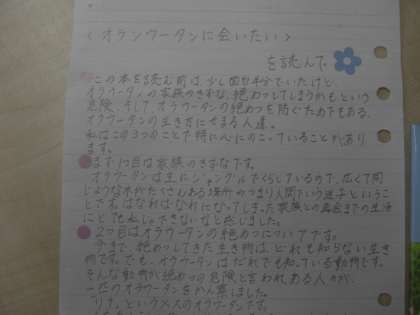 〈オランウータンに会いたい〉
を読んで
この本を読む前は、少し
オラウータンの家族のきずな、絶めつしてしまうかもという
危険、そして、オラウータンの絶めつを防ぐためでもある、
オラウータンの生き方にせまる人達。
私はこの3つのことで特に心にのこっていることが有り
ます。
まず1つ目は家族のきずなです。
オラウータンは主にジャングルでくらしているので、広くて同
じような木がたくさんある場所のつまり人間でいう迷子というこ
とです。はなればなれになってしまった家族との再会までの生活
にとても

2つ目はオラウータンの絶めつについてです。
今まで、絶めつしてきた生き物は、どれも知らない生き
物です。でも、オラウータンはだれでも知っている動物です。
そんな動物が絶めつの危険と言われ、ある人々が、
一匹のオラウータンをかん察しました。
リナ、というメスのオラウータンです。